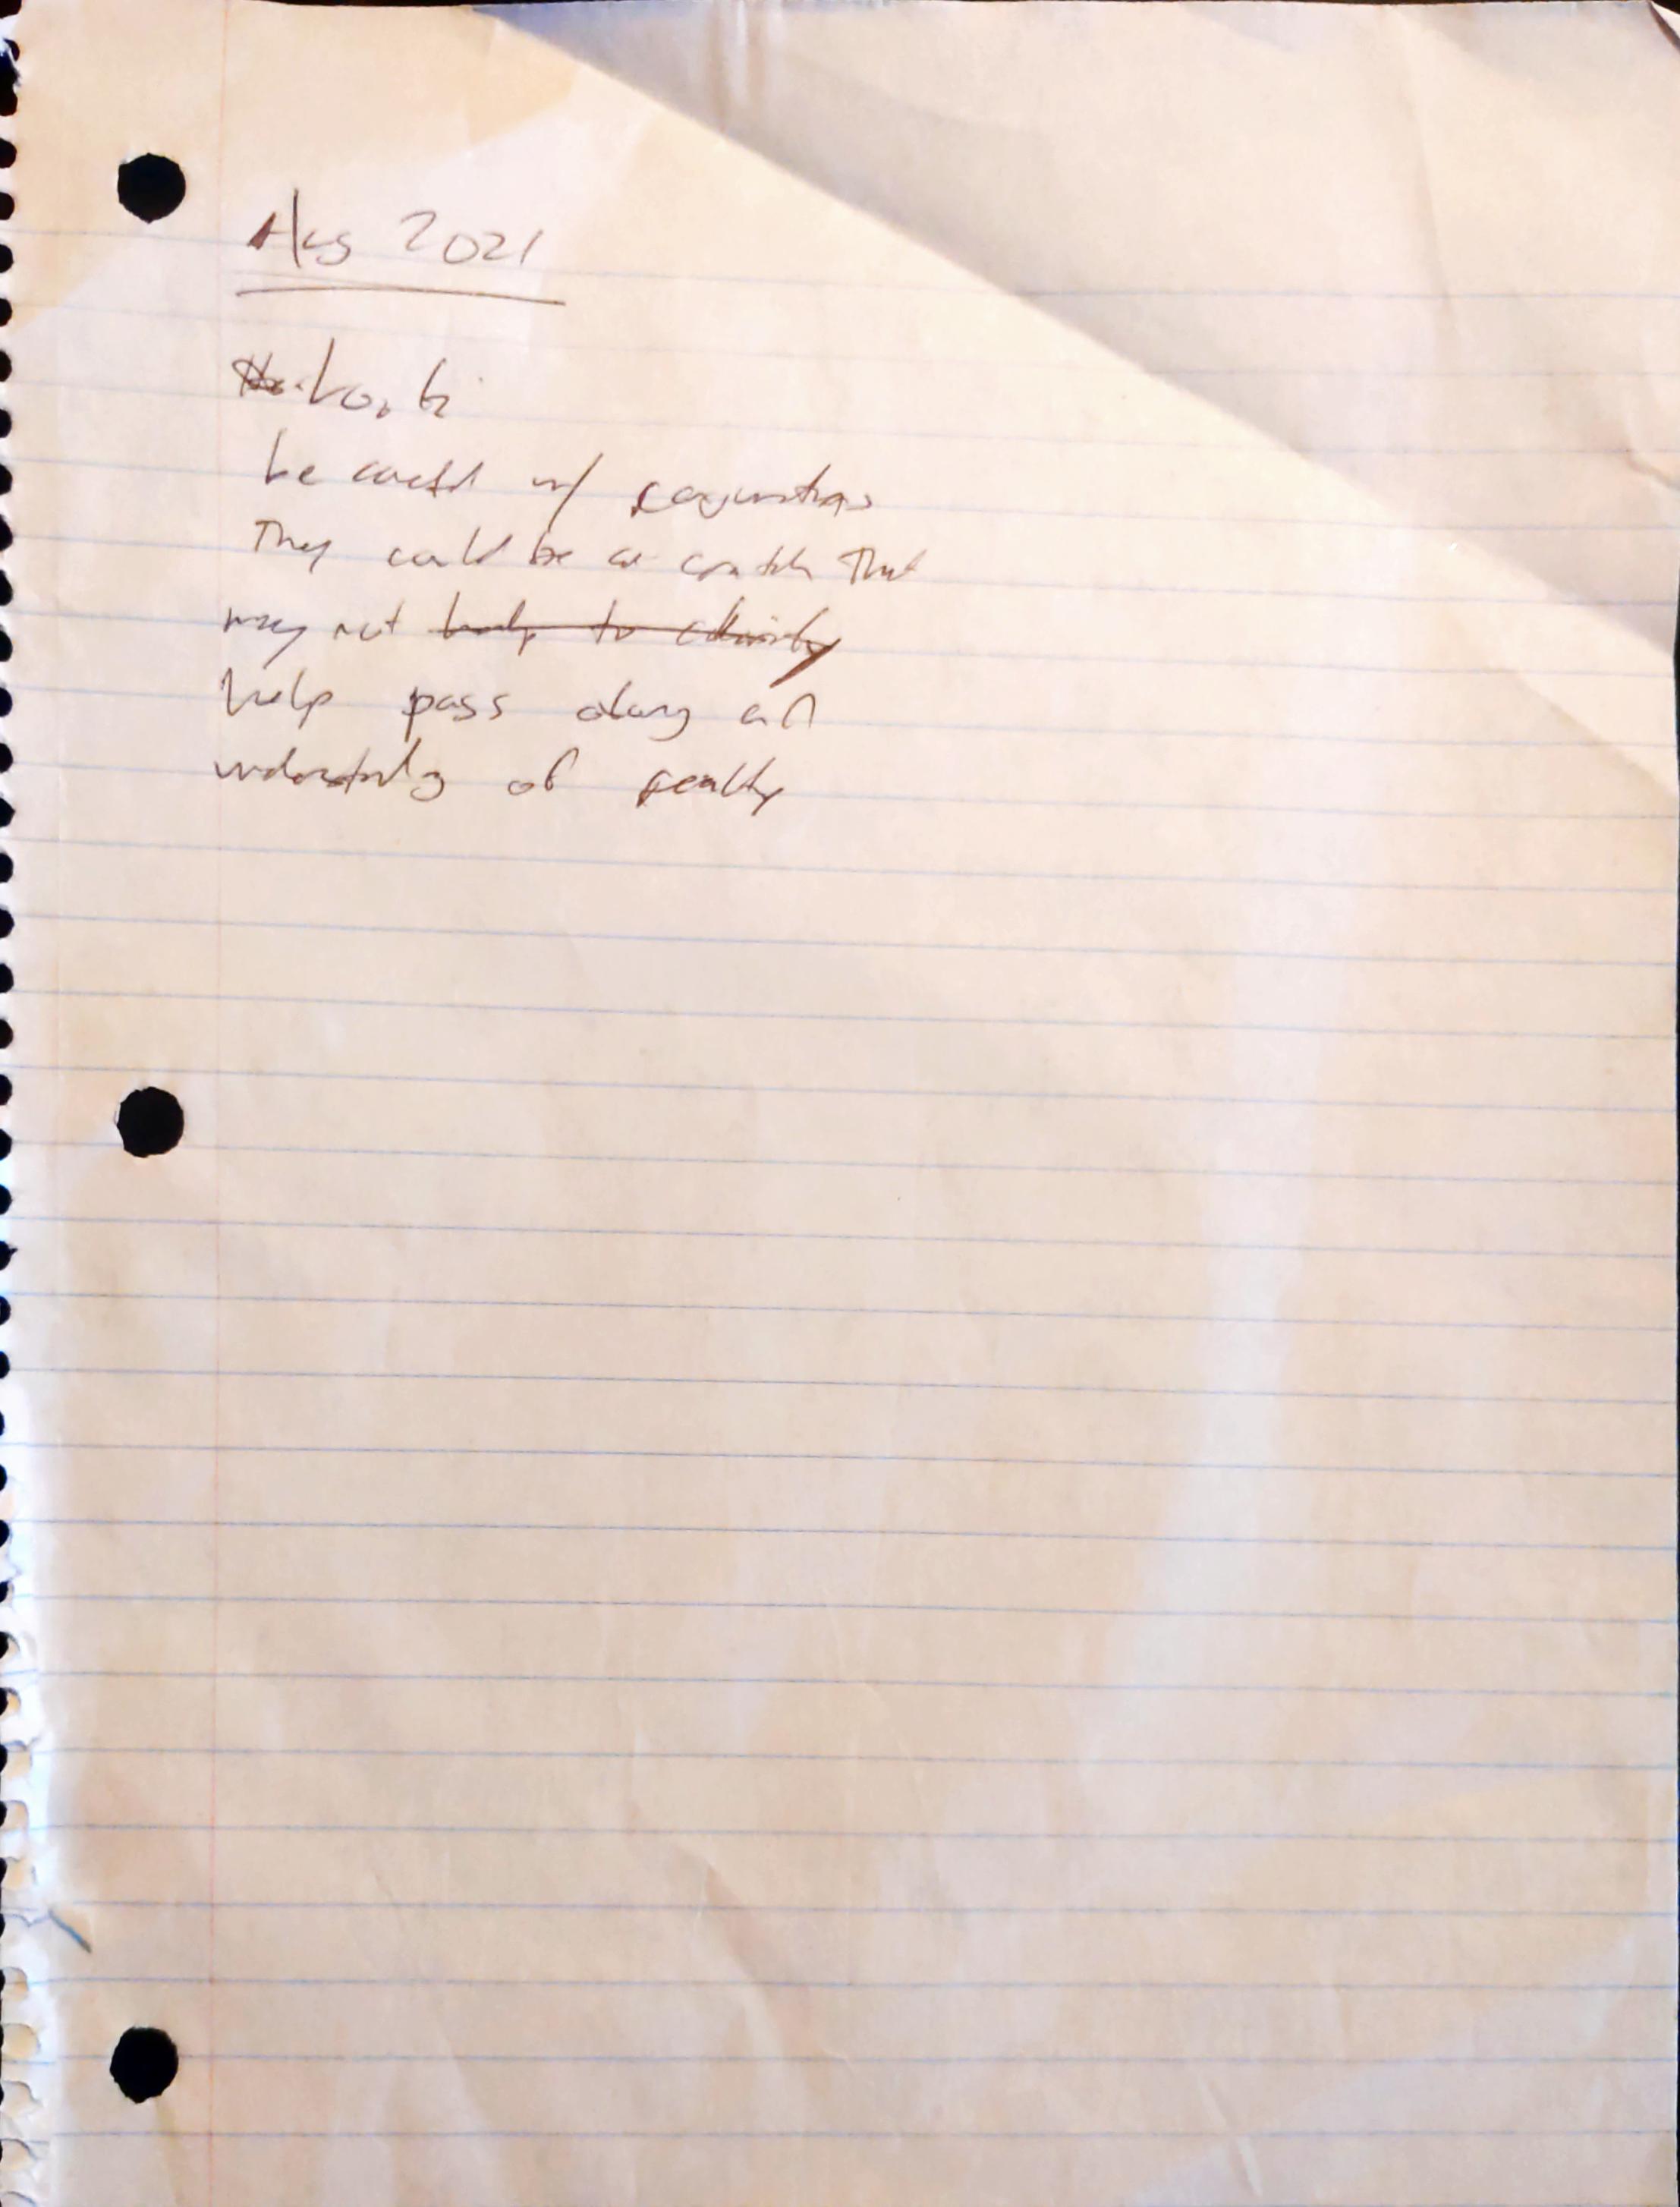 Aug 2021
be careful w/ conjunctions
They could be a crutch that
may not help to
help pass along an
understanding of reality